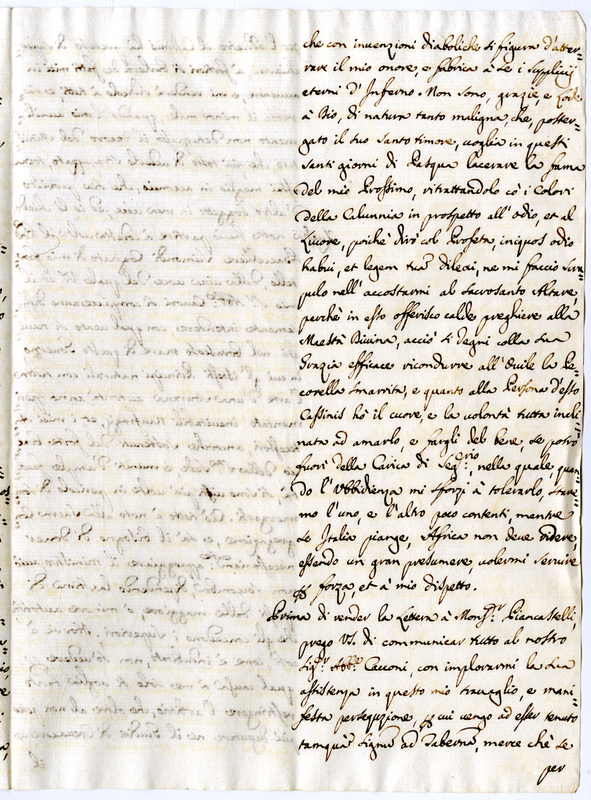 che con invenzioni diaboliche si figura d'atter=
rare il mio onore, e fabrica à se i supplicij
eterni d'Inferno. Non sono, grazie, e lode
à Dio, di natura tanto maligna che, poster=
gato il tuo santo timore, voglia in questi
santi giorni di Pasqua lacerare la fama
del mio Prossimo, ritrattandolo cò i Colori
della Calunnia in prospetto all'odio, et al
Livore, poiche dirò col Profeta, iniquos odio
habui, et legem tuã dilexi, ne mi faccio scru=
pulo nell'accostarmi al sacrosanto Altare,
perche in esso offerisco calde preghiere alla
Maestà Divina, acciò si degni colla sua
Grazia efficace ricondurre all'Ovile la Pe=
corella smarrita, e quanto alla Persona d'esso
Cassinis hò il cuore, e la volontà tutta incli=
nata ad amarlo, e fargli del bene, se potrò
fuori della Carica di Seg.rio, nella quale quan=
do l'Ubbidienza mi sforzi à tolerarlo, stare=
mo l'uno, e l'altro poco contenti, mentre
se Italia piange, Africa non deve ridere,
essendo un gran presumere, volermi servire
per forza, et à mio dispetto.
Prima di render la Lettera à Mons.r Piancastelli,
prego VS. di communicar tutto al nostro
Sig.r Abb.e Cauoni, con implorarmi la sua
assistenza in questo mio travaglio, e mani=
festa persequzione, per cui vengo ad esser tenuto
tamquã signũ ad Tabernã, merce chè se
per